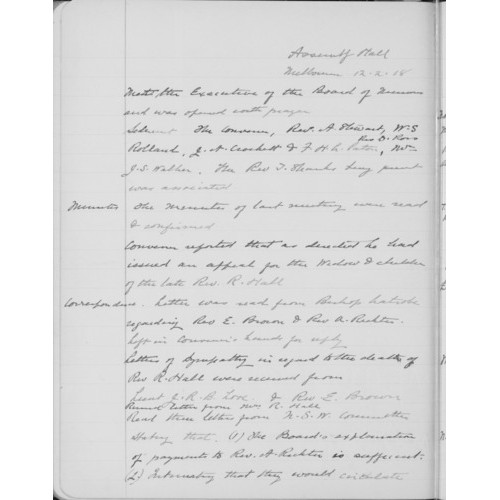 Assembly Hall
Melbourne 12.2.18
Meets the Executive of the Board of Missions
and was opened with prayer
The Convener, Rev. A. Stewart, W. S
Rev D. Ross
Rolland, J. A. Crockett & F. H. L. Paton,
J. G. Walker. The Rev being present
was associated
Minutes The Minutes of last meeting were read
& confirmed
Convener reported that as directed he had
issued an appeal for the Widow & children
of the late Rev. R. Hall
Correspondence. Letter was read from Bishop Latrobe
regarding Rev E. Brown & Rev A. Richter.
Left in Convener's hands for reply
Letters of Sympathy in regard to the death of
Rev R. Hall were received from
Lieut J. R. B. Love & Rev E. Brown
letter from Mrs R. Hall
Read three letters from N. S. W. Committee
Stating that (1) The Board's explanation
of payments to Rev. A. Richter is sufficient.
(2) Intimating that they would circulate